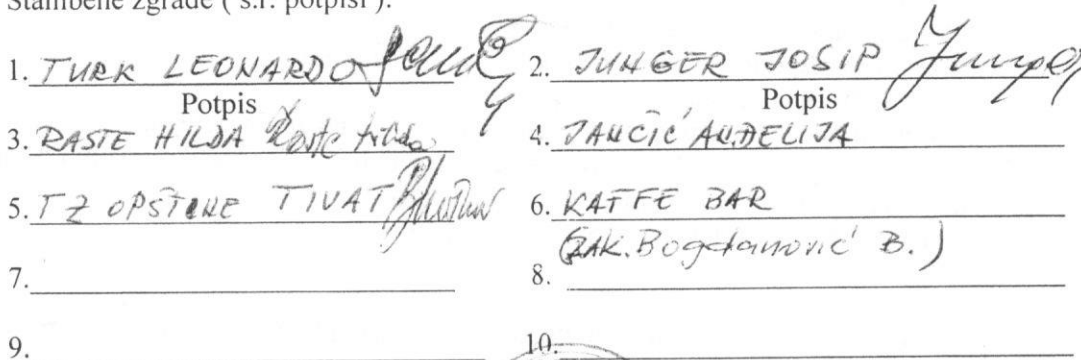 Stambene zgrade ( s.r. potpisi ).
1. TURK LEONARDO 2. JUNGER JOSIP
Potpis Potpis
3. RASTE HILDA Raste Hilda 4. JANČIĆ ANĐELIJA
5. TZ OPŠTINE TIVAT 6. KAFFE BAR
(ZAK. Bogdanović B.)
7. 8.
9. 10.